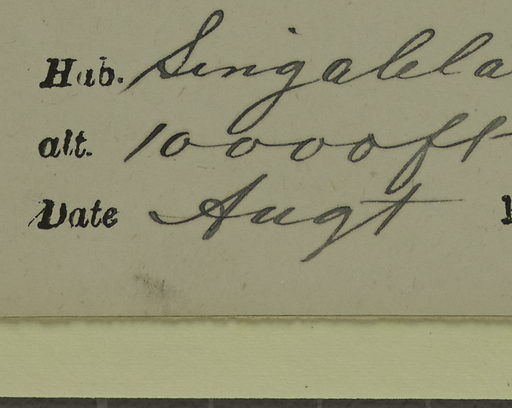 Hab. Singalela
alt. 10000 ft
Date Augt